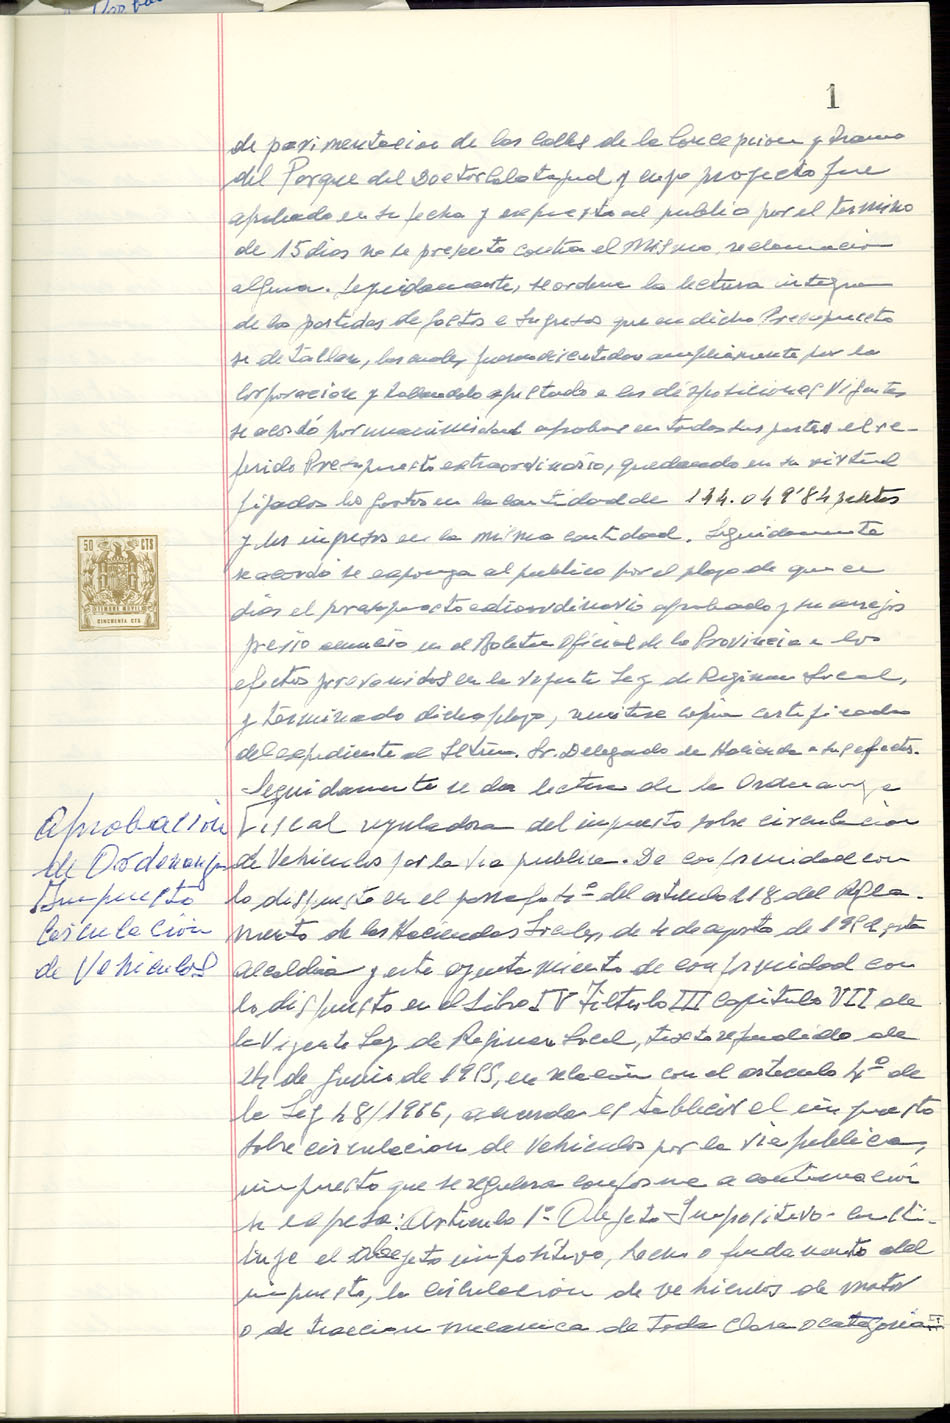 1
de pavimentacion de las Calles de la Concepcion y tramo
del Parque del Doctor Calatayud y cuyo proyecto fue
aprobado en su fecha y expuesto al publico por el termino
de 15 dias no se presento contra el mismo reclamacion
alguna. Seguidamente, se ordena la lectura integra
de las partidas de gastos e Ingresos que en dicho Presupuesto
se detallan, las cuales fueron discutidas ampliamente por la
Corporacion y hallandolo ajustado a las disposiciones Vigentes
se acordó por unanimidad aprobar en todas sus partes el re-
ferido Presupuesto extraordinario, quedando en su virtud
fijados los gastos en la cantidad de 144.049'84 pesetas
y los ingresos en la misma cantidad. Seguidamente
se acordó se exponga al publico por el plazo de quince
dias el presupuesto extraordinario aprobado y su anejos
previo anuncio en el Boletin Oficial de la Provincia a los
efectos prevenidos en la vigente Ley de Regimen Local,
y terminado dicho plazo, remitase copia certificada
del expediente al Iltmo. Sr. Delegado de Hacienda a sus efectos.
Seguidamente se da lectura de la Ordenanza
Fiscal reguladora del impuesto sobre circulacion
de Vehiculos por la via publica. De conformidad con
lo dispuesto en el parrafo 4º del articulo 218 del Regla-
mento de las Haciendas Locales de 4 de agosto de 1952, esta
alcaldia y este ayuntamiento de conformidad con
lo dispuesto en el Libro IV Titulo III Capitulo VII de
la Vigente Ley de Regimen Local, texto refundido de
24 de Junio de 1955, en relación con el articulo 4º de
la Ley 48/1966, acuerda establecer el impuesto
sobre circulacion de Vehiculos por la via publica,
impuesto que se regulara conforme a continuación
se expresa: Articulo 1º- Objeto Impositivo- Consti-
tuye el objeto impositivo, hecho o fundamento del
impuesto, la circulación de vehiculos de motor
o de traccion mecanica de toda clase o categoria
Aprobación
de Ordenanza
Impuesto
Circulación
de Vehiculos
50 CTS
TIMBRE MOVIL
CINCUENTA CTS